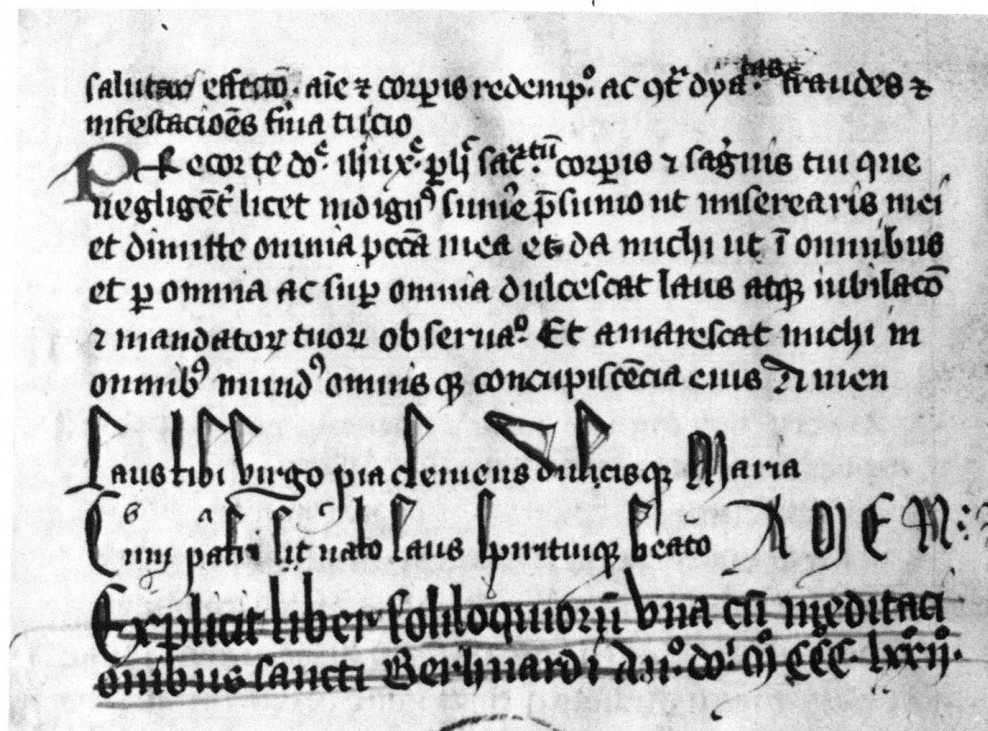 salutaris effectio. aīe ⁊ corpis redempº. ac ꝯtᵃ dyaᵗᵃˢ. fraudes ⁊
infestacioēs firma tuicio
P Recor te doᵉ. ihu xᵉ. sacᵗᵘ̄. corpis ⁊ sāgīnis tui que
negligēt licet indignꝰ sumē p̄sumo ut miserearis mei
et dimitte omnia pccā mea et da michi ut ī omnibus
et ꝑ omnia ac suꝑ omnia dulcescat laus atqꝫ iubilacō
⁊ mandatoꝝ tuoꝝ obseruaº. Et amarescat michi in
omnibꝰ mundꝰ omnis qꝫ concupiscēcia eius Amen
Laus tibi virgo pia clemens dulcisqꝫ Maria
Cum patri sit nato laus spirituiqꝫ beato A M E N:
Explicit liber soliloquiorū vna cū meditaci
onibus sancti Bernhardi Anº. doⁱ. Mº CCCº. lxxijº.